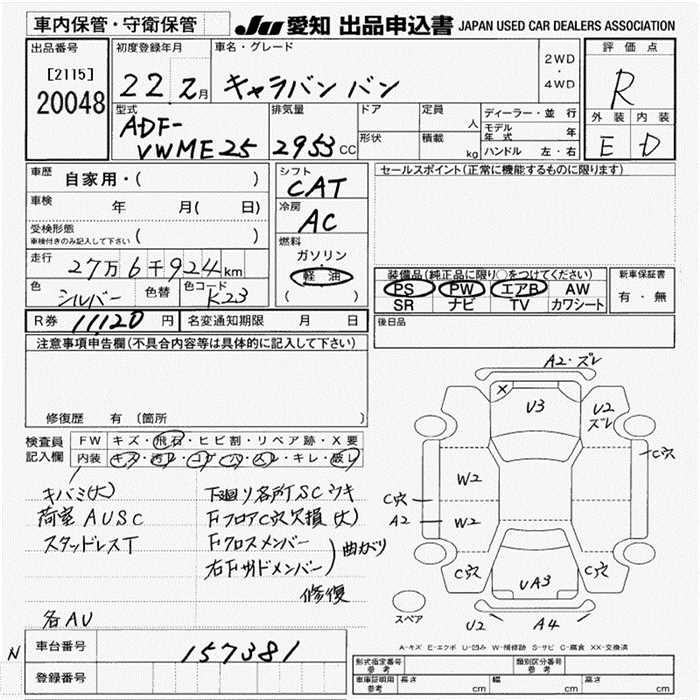 車内保管・守衛保管
JU 愛知 出品申込書 JAPAN USED CAR DEALERS ASSOCIATION
出品番号
[2115]
20048
初度登録年月
22 2月
車名・グレード
キャラバン バン
2WD
・
4WD
評価点
R
外装 内装
E D
型式
ADF-
VWME25
排気量
2953 CC
ドア
形状
定員
人
積載
kg
ディーラー・並行
モデル年式 年
ハンドル 左・右
車歴 自家用・( )
車検 年 月(日)
受検形態
車検付きのみ記入して下さい ( )
走行 27万6千924km
色 シルバー 色替 色コード K23
シフト
CAT
冷房
AC
燃料
ガソリン
軽油
( )
セールスポイント(正常に機能するものに限ります)
装備品(純正品に限り○をつけてください)
PS PW エアB AW
SR ナビ TV カワシート
新車保証書
有・無
後日品
R券 11120 円 名変通知期限 月 日
注意事項申告欄(不具合内容等は具体的に記入して下さい)
修復歴 有 〔箇所 〕
検査員
記入欄
FW キズ・飛石・ヒビ割・リペア跡・X要
内装 キズ・汚レ・コゲ・穴・ムレ・キレ・破レ
キバミ(大)
荷室AUSC
スタッドレスT
各AU
下廻り各所SCサキ
FフロアC穴欠損(大)
Fクロスメンバー
右Fサイドメンバー
曲がり
修復
A2・ズレ
X
U3
U2
ズレ
C穴
W2
C穴
A2
W2
C穴
C穴
UA3
スペア
U2
A4
A-キズ E-エクボ U-凹み W-補修跡 S-サビ C-腐食 XX-交換済
N
車台番号 157381
登録番号
形式指定番号
参考
類別区分番号
参考
車庫証明用
参考
長さ cm 幅 cm 高さ cm